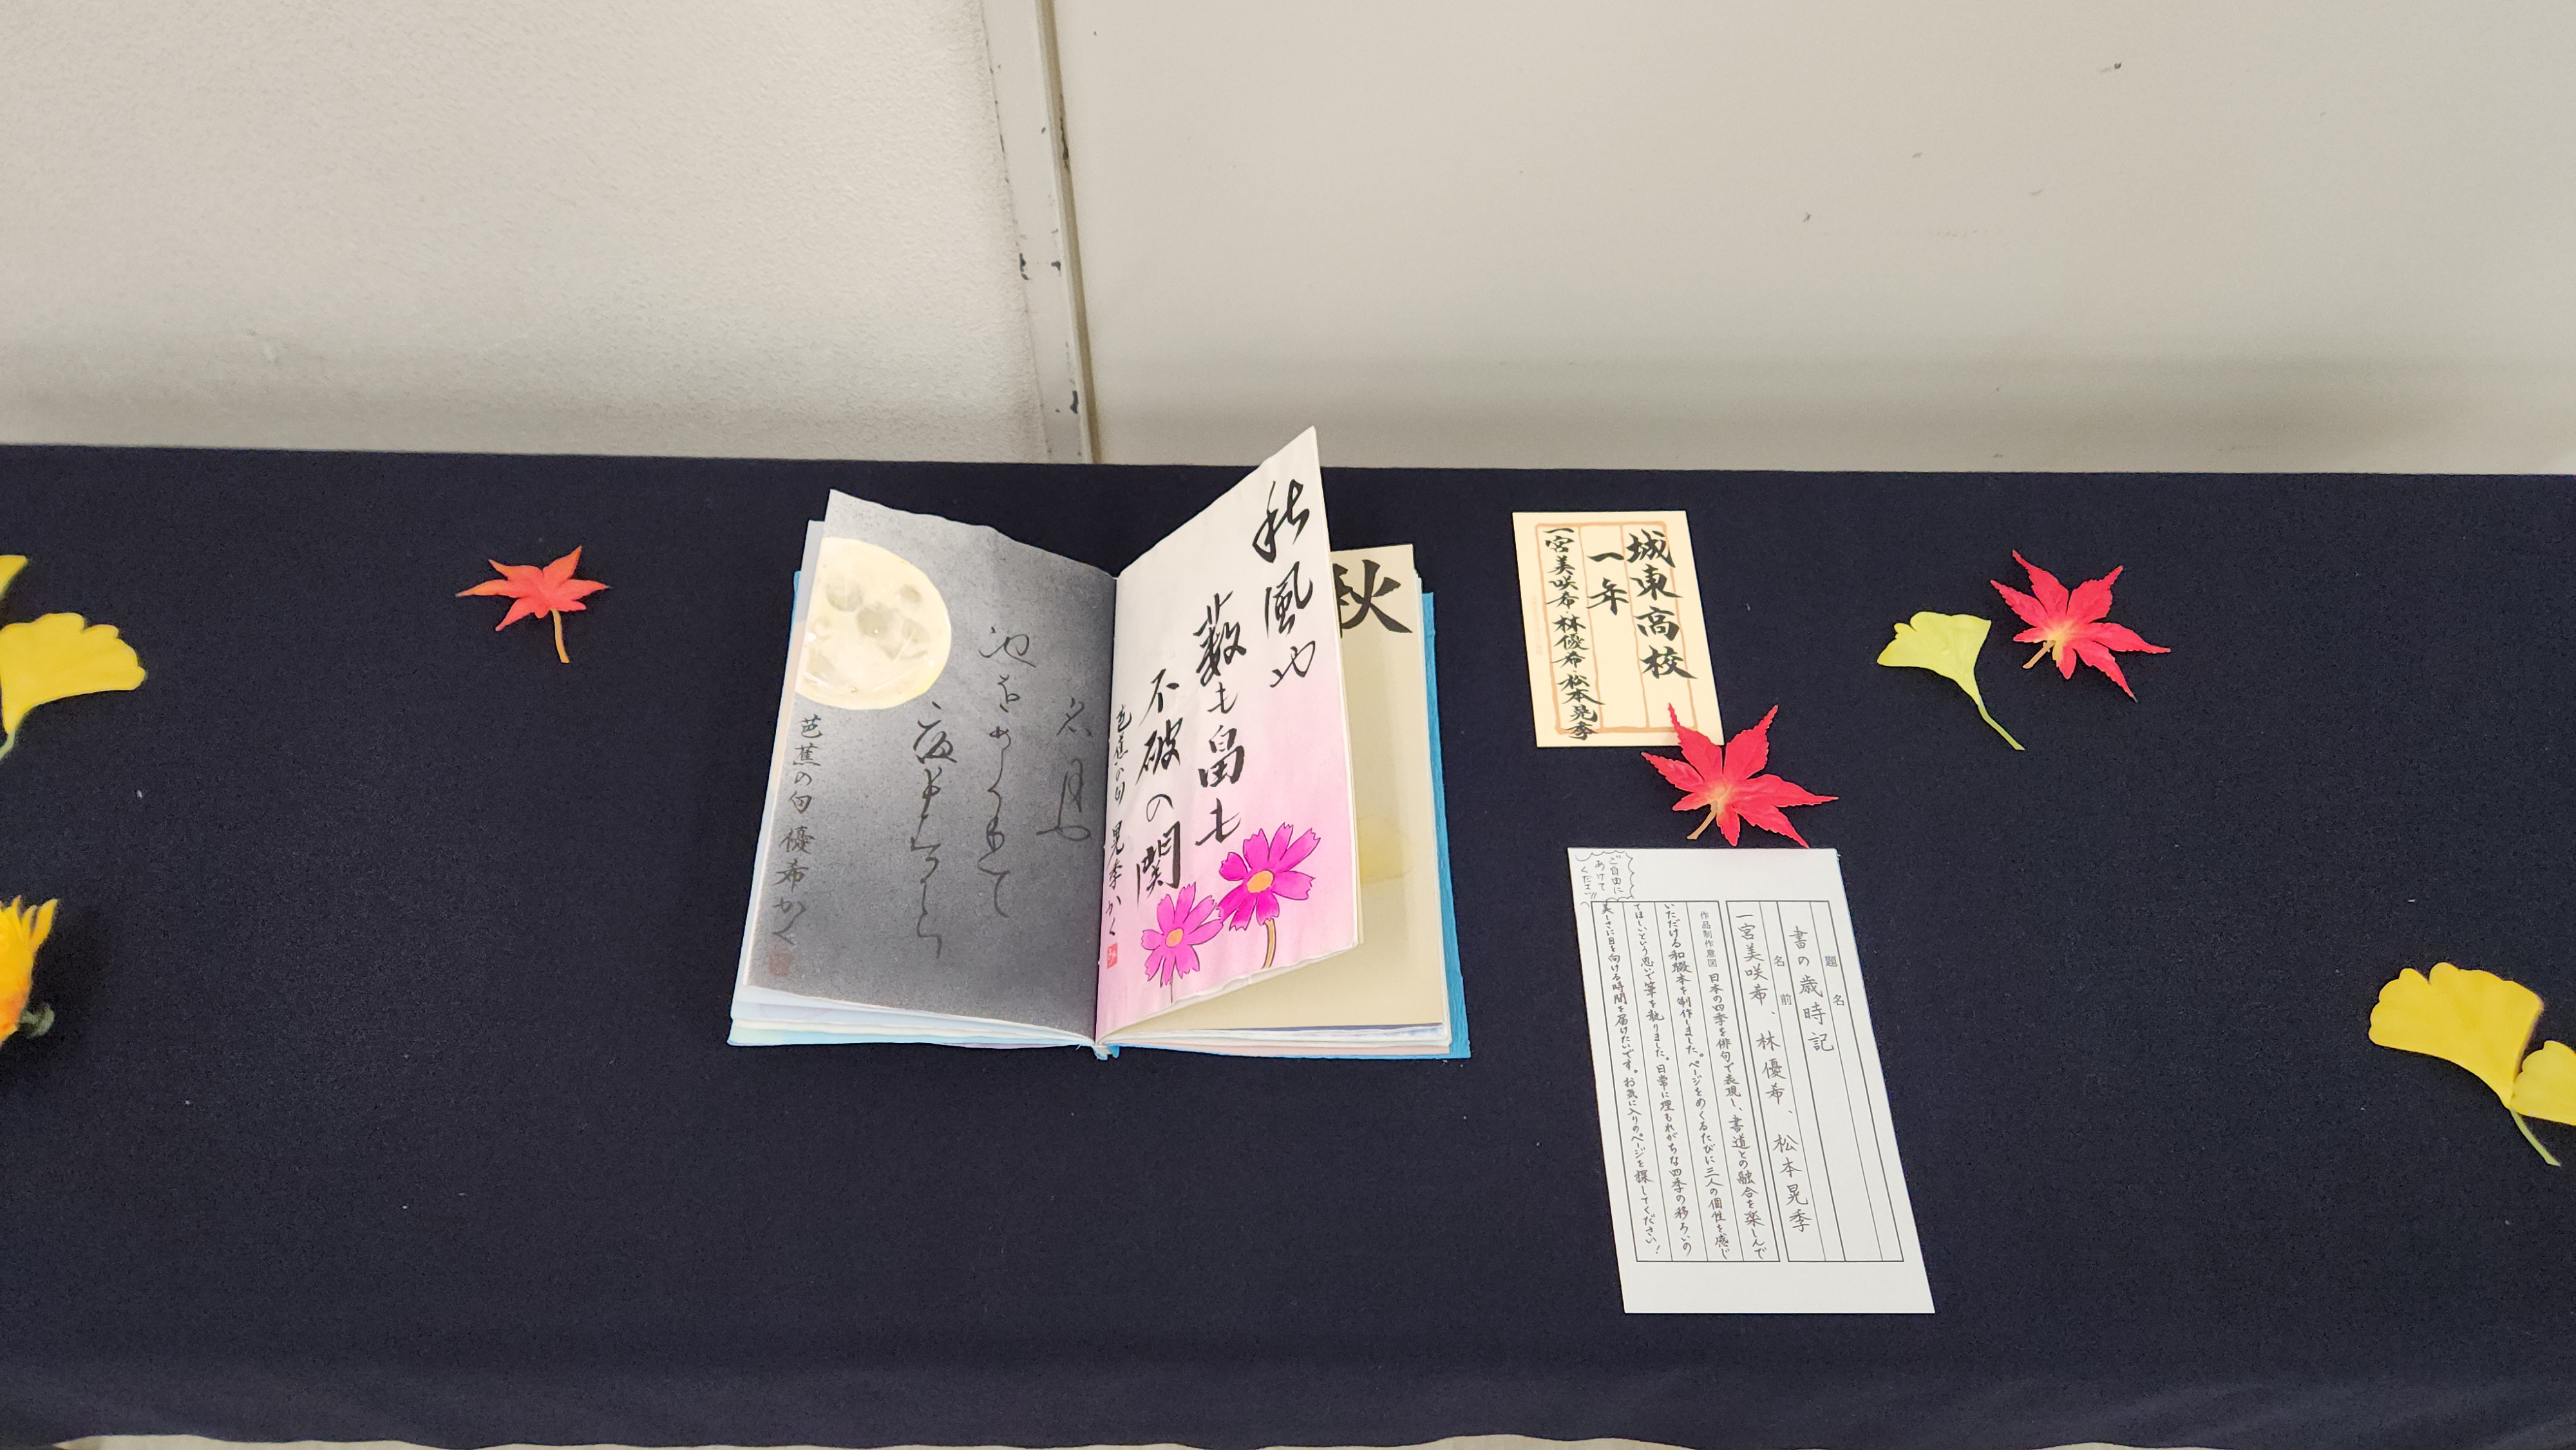 秋
秋風や
薮も畠も
不破の関
芭蕉の句 晃季かく
名月や
池をめくりて
夜もすから
芭蕉の句 優希かく
城東高校
一年
一宮美咲希・林優希・松本晃季
題名
書の歳時記
名前
一宮美咲希、林優希、松本晃季
作品制作意図 日本の四季を俳句で表現し、書道との融合を楽しんで
いただける和綴本を制作しました。ページをめくるたびに三人の個性を感じ
てほしいという思いで筆を執りました。日常に埋もれがちな四季の移ろいの
美しさに目を向ける時間を届けたいです。お気に入りのページを探してください！
ご自由に
あけて
ください!!